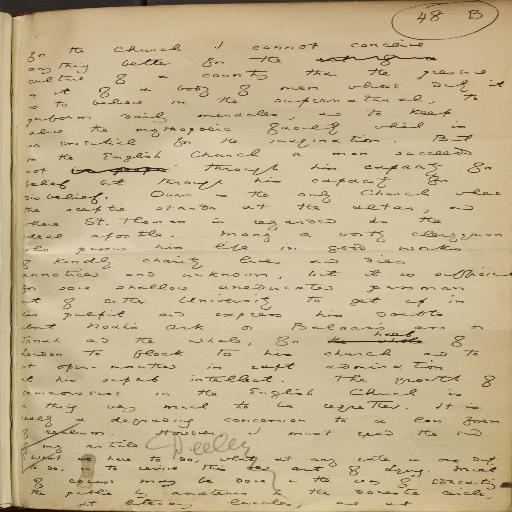 48 B
for the Church I cannot conceive
anything better for the
culture of a country than the presence
in it of a body of men whose duty it
is to believe in the supernatural, to
perform daily miracles, and to keep
alive the mythopoeic faculty which is
so essential for the imagination. But
in the English Church a man succeeds
not through his capacity for
belief but through his capacity for
disbelief. Ours is the only Church where
the sceptic stands at the altar, and
where St. Thomas is regarded as the
ideal apostle. Many a worthy clergyman
who passes his life in good works
of kindly charity lives and dies
unnoticed and unknown, but it is sufficient
for some shallow uneducated passman
out of either University to get up in
his pulpit and express his doubts
about Noah's Ark or Balaam's ass or
Jonah and the whale, for half of
London to flock to his church and to
sit open-mouthed in rapt admiration
at his superb intellect. The growth of
commonsense in the English Church is
a thing very much to be regretted. It is
really a degrading concession to a low form
of realism. However, I must read the end
of my article
Weeley
What we have to do, what at any rate is our duty
to do, is to revive this old art of lying. Much
of course may be done in the way of educating
the public by amateurs in the domestic circle,
at literary lunches, and at